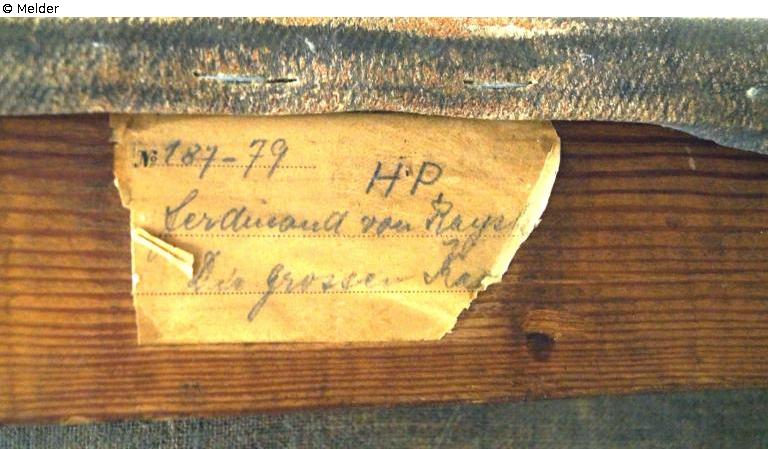 © Melder
№ 187-79
HP
Ferdinand von Rays
Die grossen Ka